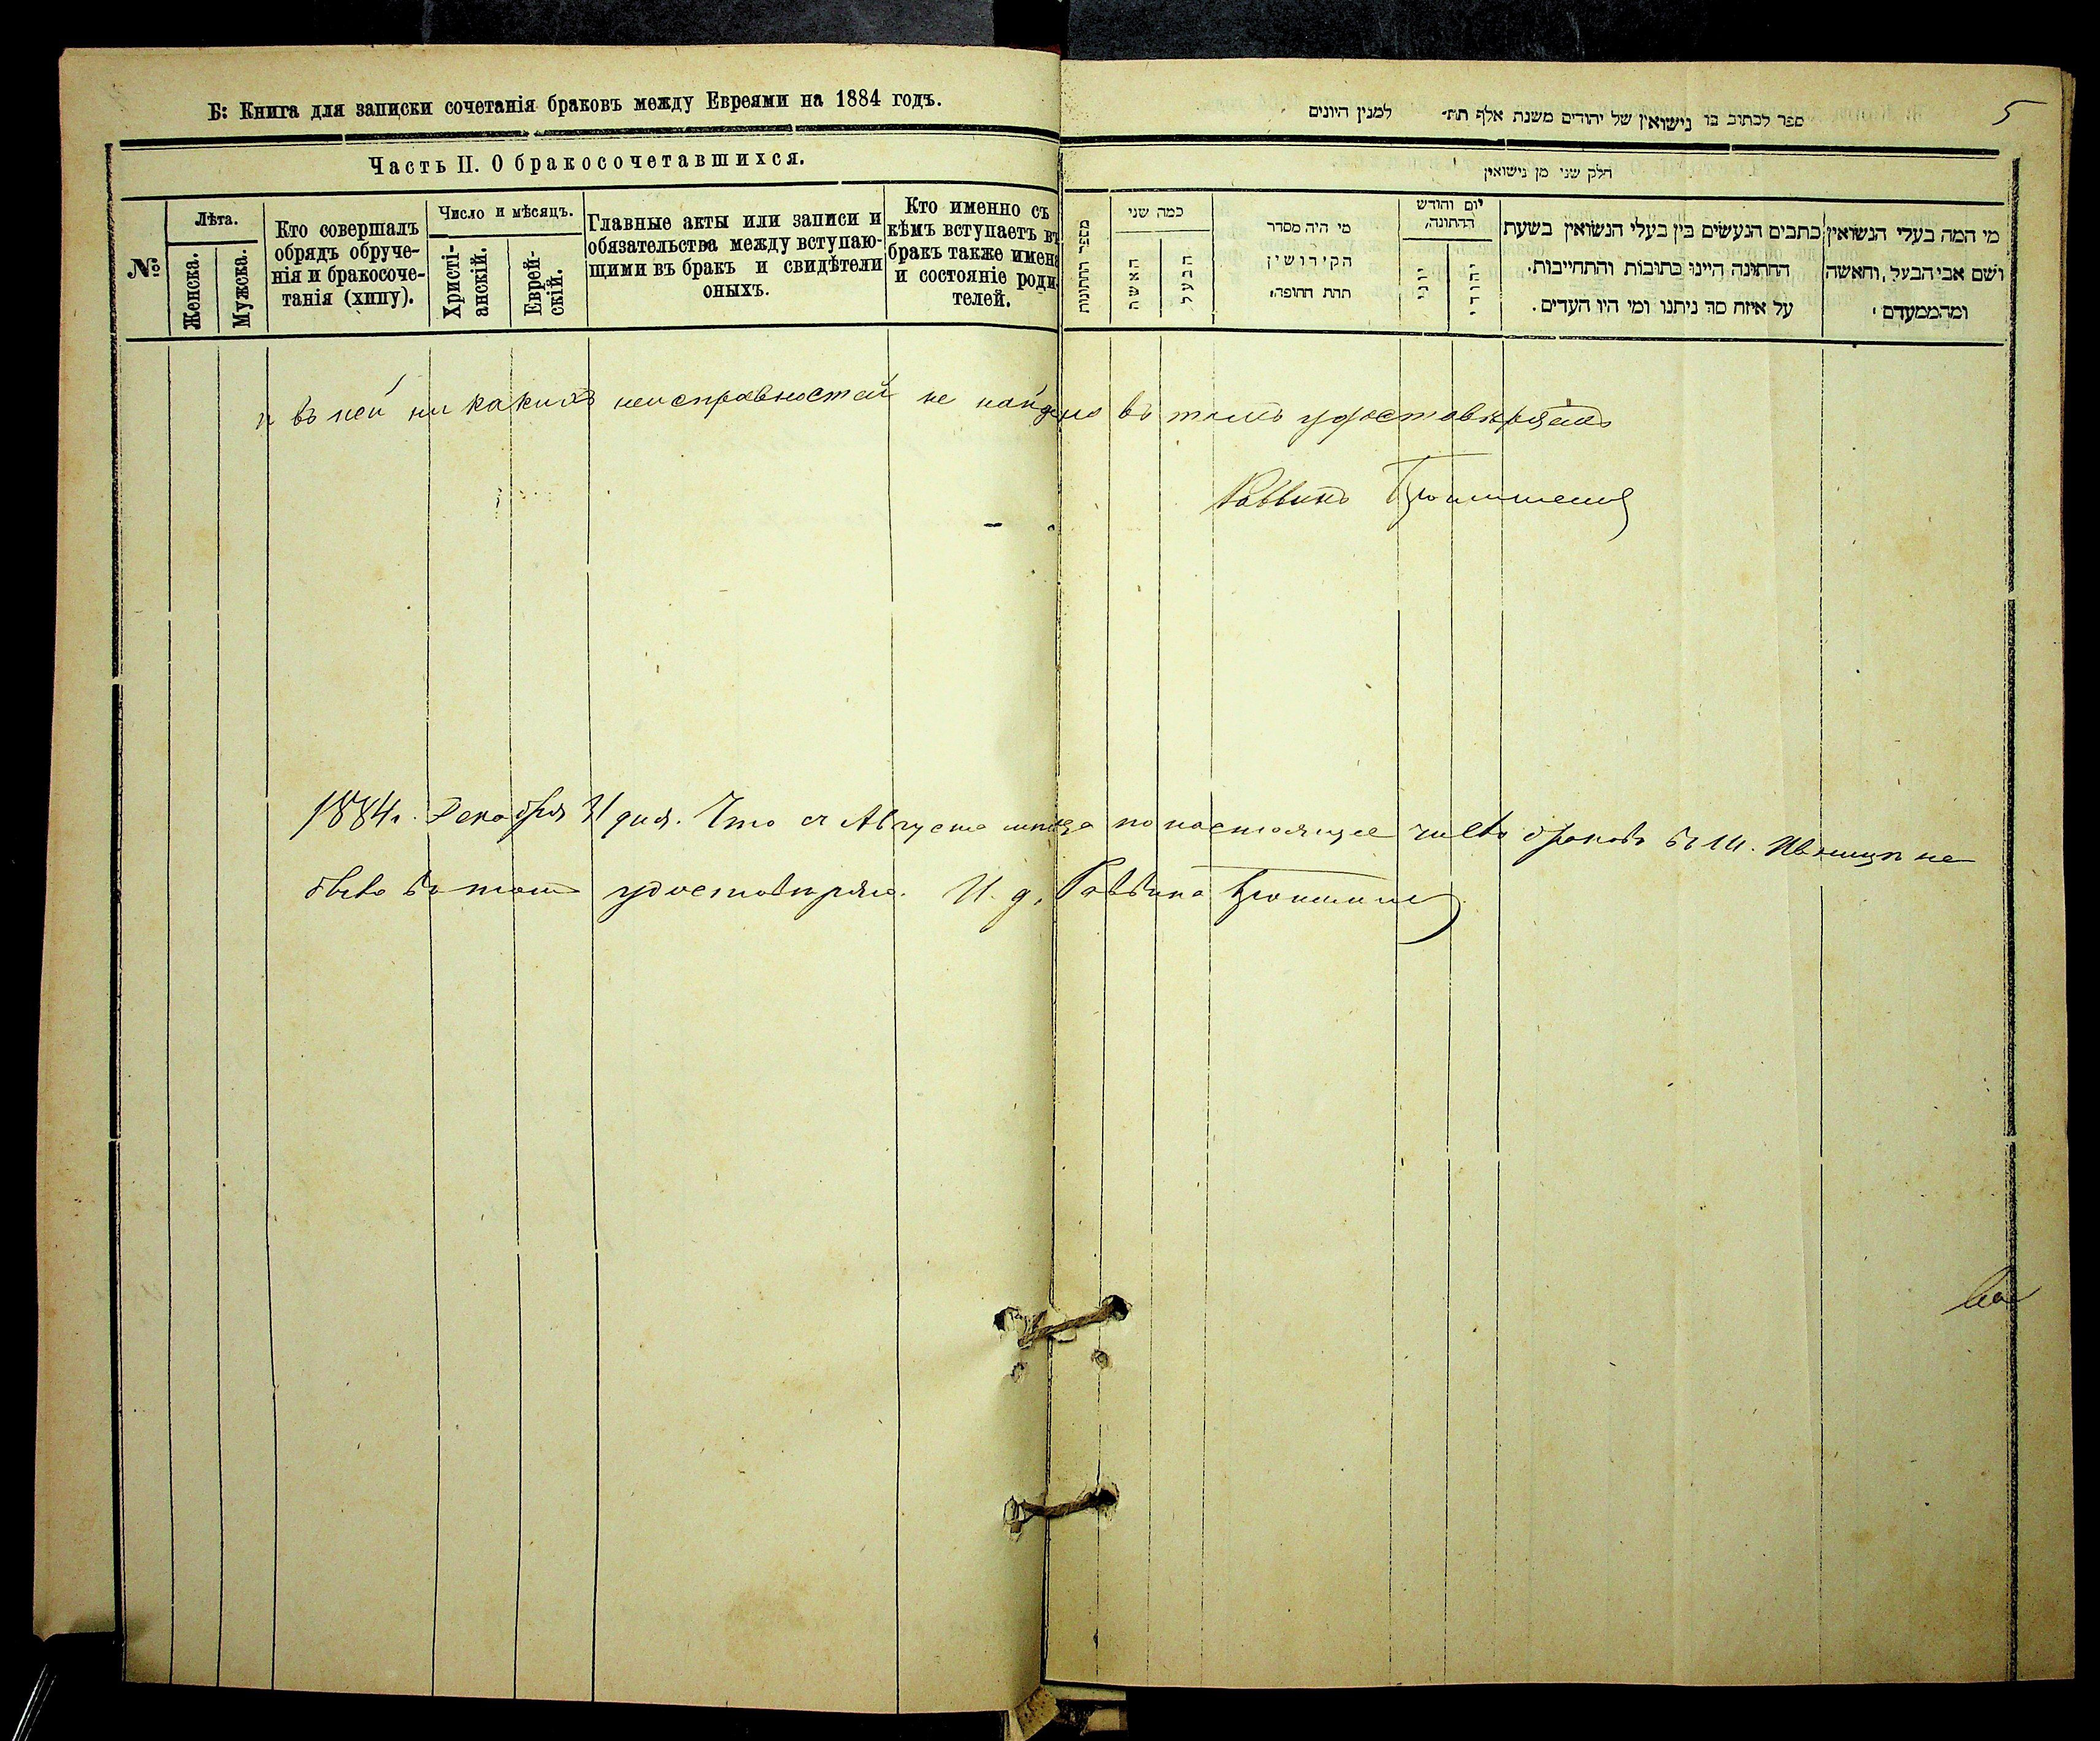 Б: Книга для записки сочетанія браковъ между Евреями на 1884 годъ.
Часть II. О бракосочетавшихся.
№
Лѣта.
Женска.
Мужска.
Кто совершалъ
обрядъ обруче-
нія и бракосоче-
танія (хипу).
Число и мѣсяцъ.
Христі-
анскій.
Еврей-
скій.
Главные акты или записи и
обязательства между вступаю-
щими въ бракъ и свидѣтели
оныхъ.
Кто именно съ
кѣмъ вступаетъ въ
бракъ также имена
и состояніе роди-
телей.
5
ספר לכתוב בו נישואין של יהודים משנת אלף תת׳ למנין היונים
חלק שני מן נישואין
מי המה בעלי הנשואין
ושם אבי הבעל, והאשה
ומהממעדם
כתבים הנעשים בין בעלי הנשואין בשעת
החתונה היינו כתובות והתחייבות.
על איזה סך ניתנו ומי היו העדים.
יום וחודש
החתונה
יהודי
יוני
מי היה מסדר
הקידושין
תחת החופה
כמה שני
הבעל
האשה
מספר החתונות
и въ ней ни какихъ неисправностей не найдено въ томъ удостовѣряемъ
Раввинъ
1884г. Декабря 31 дня. Что съ Августа мѣсяца по настоящее число браковъ въ м. Ивницѣ не
было въ томъ удостовѣряю. И. д. Раввина